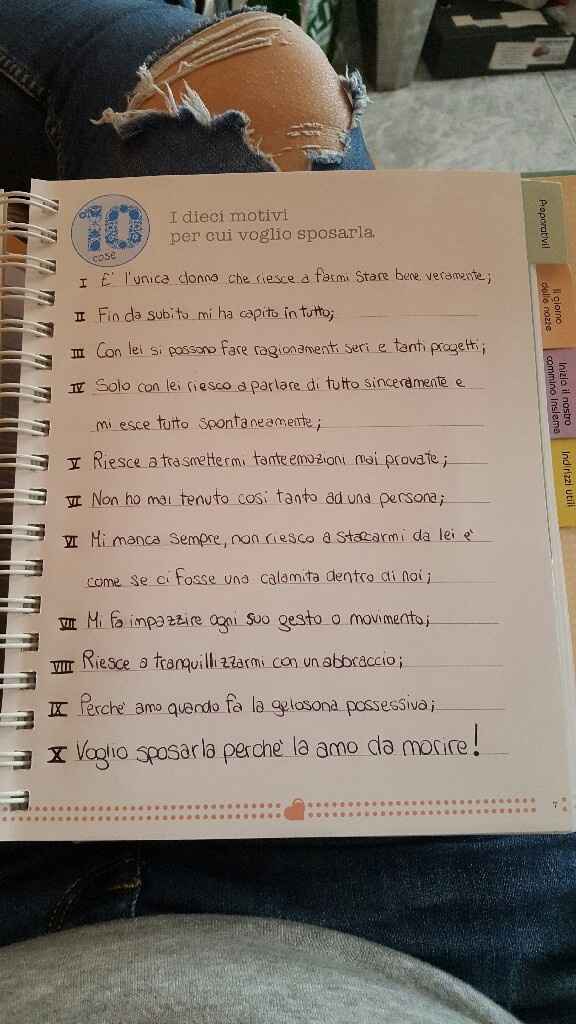 10
cose
I dieci motivi
per cui voglio sposarla
I E' l'unica donna che riesce a farmi stare bene veramente;
II Fin da subito mi ha capito in tutto;
III Con lei si possono fare ragionamenti seri e tanti progetti;
IV Solo con lei riesco a parlare di tutto sinceramente e
mi esce tutto spontaneamente;
V Riesce a trasmettermi tante emozioni mai provate;
VI Non ho mai tenuto così tanto ad una persona;
VI Mi manca sempre, non riesco a staccarmi da lei è
come se ci fosse una calamita dentro di noi;
VII Mi fa impazzire ogni suo gesto o movimento;
VIII Riesce a tranquillizzarmi con un abbraccio;
IX Perchè amo quando fa la gelosona possessiva;
X Voglio sposarla perchè la amo da morire!
7
Preparativi
Il giorno
delle nozze
Inizia il nostro
cammino insieme
Indirizzi utili